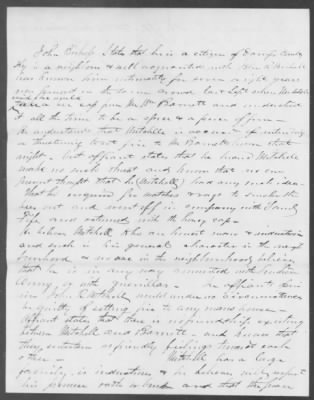 John Bishop States that he is a citizen of Davess County
Ky is a neighbor & well acquainted with John C Mitchell
has known him intimately for seven or eight years
was present on the
take a cap from Mr Wm Barrett and understood
it all the time to be a spree & a piece of fun
He understands that Mitchell is accused of
threatening to set fire to Mr Barretts house that
night. but affiant states that he heard Mitchell
make no such threat and knows that no one
present thought that he (Mitchell) had any such idea
That he enquired for matches & was to smoke the
and went off in company with
and returned with the cap
He believes Mitchell to be an honest man & industrious
and such is his general character in the neigh
borhood & no one in the neighborhood believes
that he is in any way connected with
or with guerrillas. affiant
John C Mitchell would under no circumstances
be guilty of setting fire to any mans house
Affiant states that there is no friendship existing
between Mitchell and Barrett. and knows that
they entertain unfriendly feelings towards each
other. Mitchell has a large
family, is industrious & he believes will respect
his promise oath or bond and that the